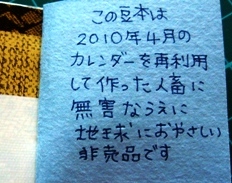 この豆本は
2010年4月の
カレンダーを再利用
して作った人畜に
無害なうえに
地球におやさしい
非売品です